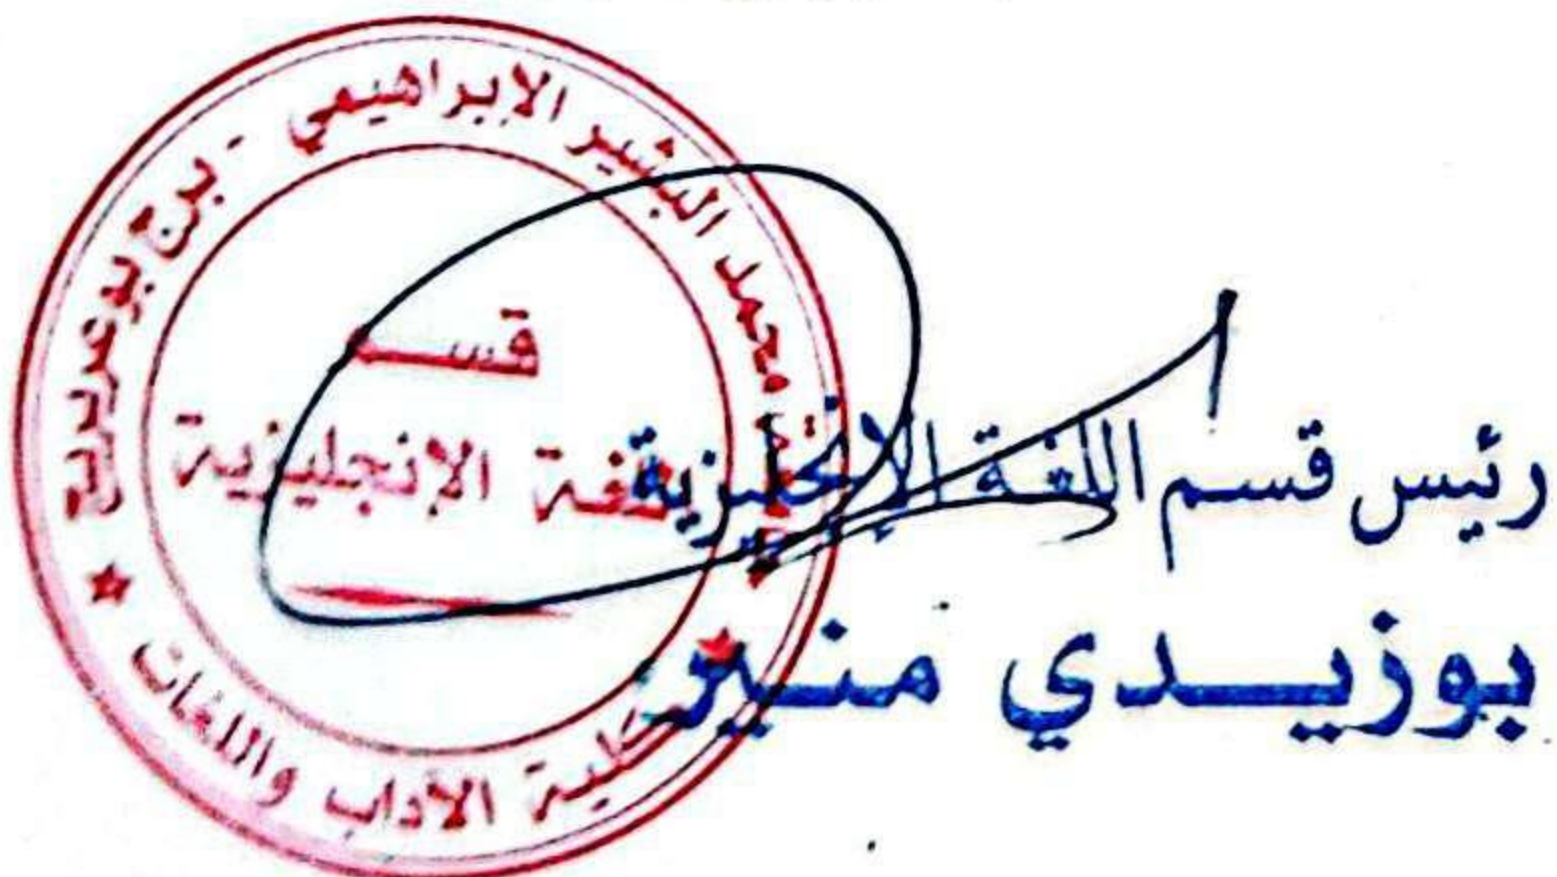 جامعة محمد البشير الإبراهيمي - برج بوعريريج
قسم
اللغة الإنجليزية
كلية الآداب واللغات
رئيس قسم اللغة الإنجليزية
بوزيدي منير